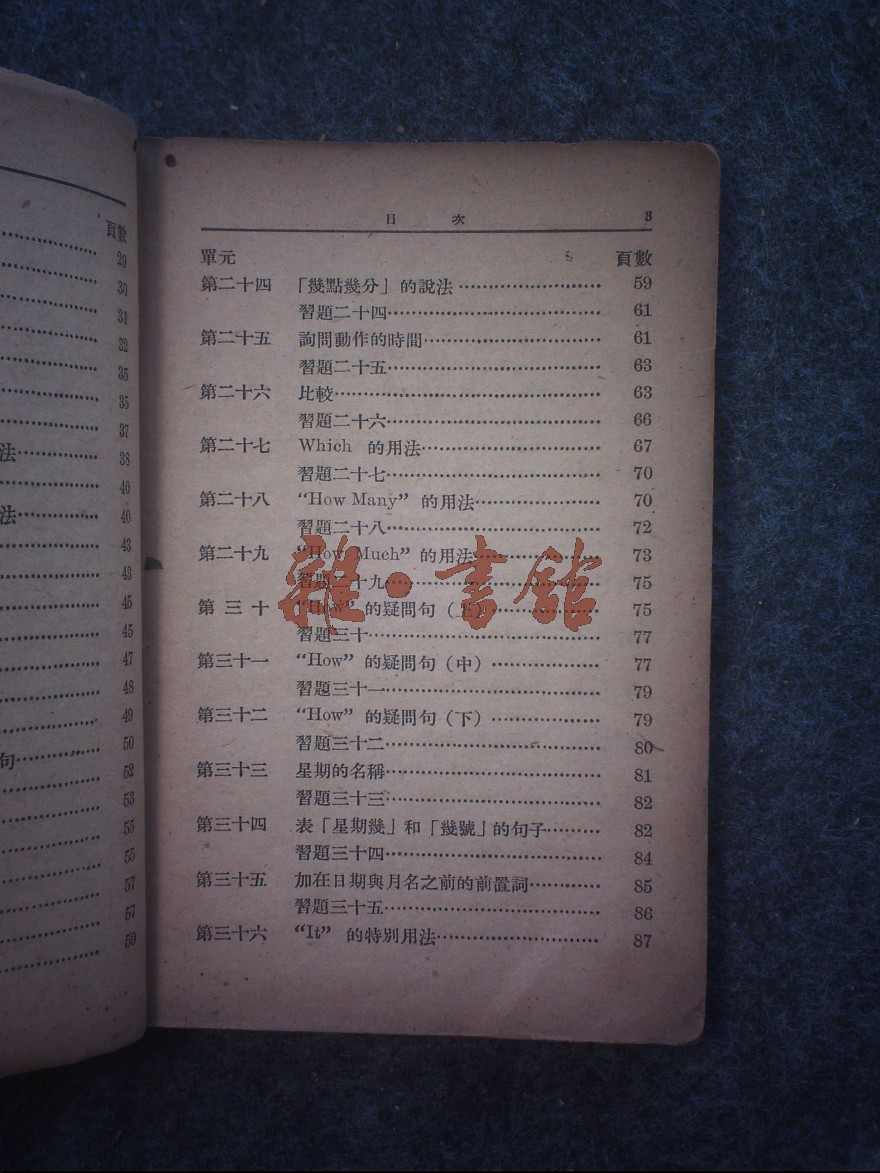 頁數
29
30
31
32
35
35
37
法 38
40
法 40
43
43
45
45
47
48
49
句 50
52
53
55
55
57
57
59
目 次 3
單元 頁數
第二十四 「幾點幾分」的說法 59
習題二十四 61
第二十五 詢問動作的時間 61
習題二十五 63
第二十六 比較 63
習題二十六 66
第二十七 Which 的用法 67
習題二十七 70
第二十八 “How Many” 的用法 70
習題二十八 72
第二十九 “How Much” 的用法 73
習題二十九 75
第三十 “How” 的疑問句(上) 75
習題三十 77
第三十一 “How” 的疑問句(中) 77
習題三十一 79
第三十二 “How” 的疑問句(下) 79
習題三十二 80
第三十三 星期的名稱 81
習題三十三 82
第三十四 表「星期幾」和「幾號」的句子 82
習題三十四 84
第三十五 加在日期與月名之前的前置詞 85
習題三十五 86
第三十六 “It” 的特別用法 87
雜·書館